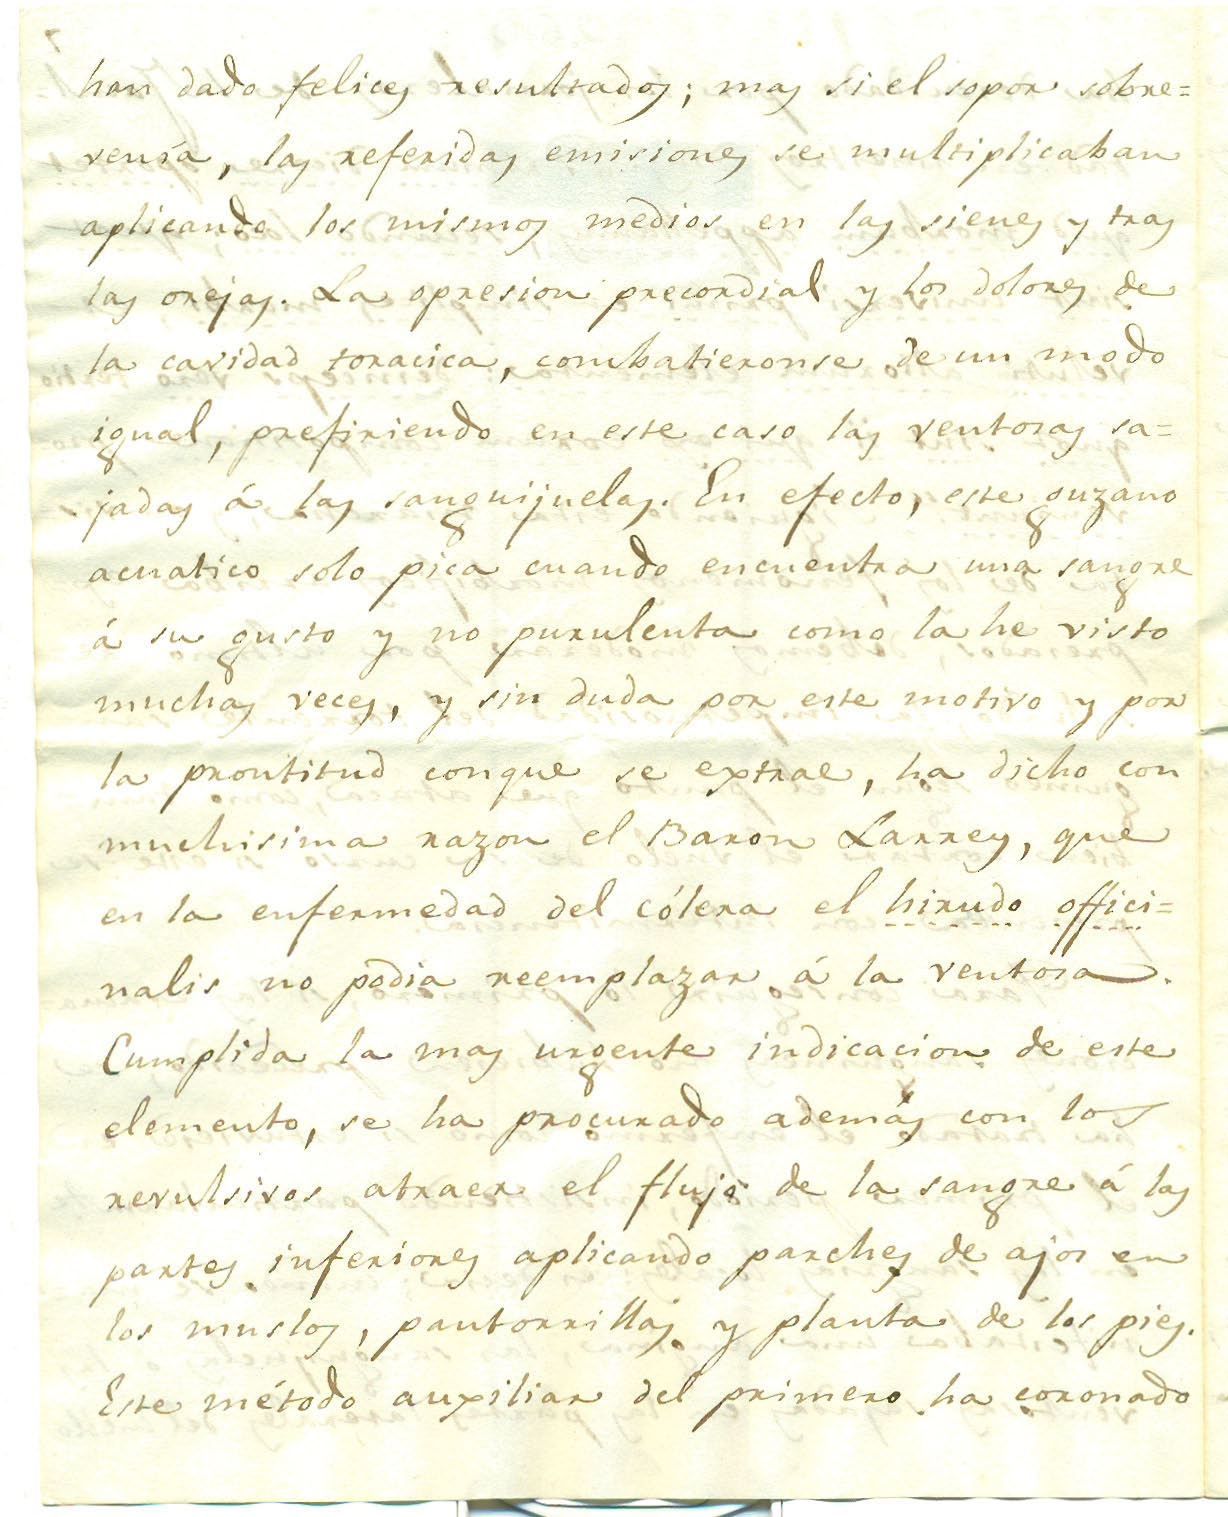 han dado felices resultados; mas si el sopor sobre=
venía, las referidas emisiones se multiplicaban
aplicando los mismos medios en las sienes y tras
las orejas. La opresion precordial y los dolores de
la cavidad toracica, combatieronse de un modo
igual, prefiriendo en este caso las ventosas sa=
jadas á las sanguijuelas. En efecto, este guzano
acuatico solo pica cuando encuentra una sangre
á su gusto y no purulenta como la he visto
muchas veces, y sin duda por este motivo y por
la prontitud conque se extrae, ha dicho con
muchisima razon el Baron Larrey, que
en la enfermedad del cólera el hirudo offici=
nalis no podia reemplazar á la ventosa.
Cumplida la mas urgente indicacion de este
elemento, se ha procurado además con los
revulsivos atraer el flujo de la sangre á las
partes inferiores aplicando parches de ajos en
los muslos, pantorrillas y planta de los pies.
Este método auxiliar del primero ha coronado